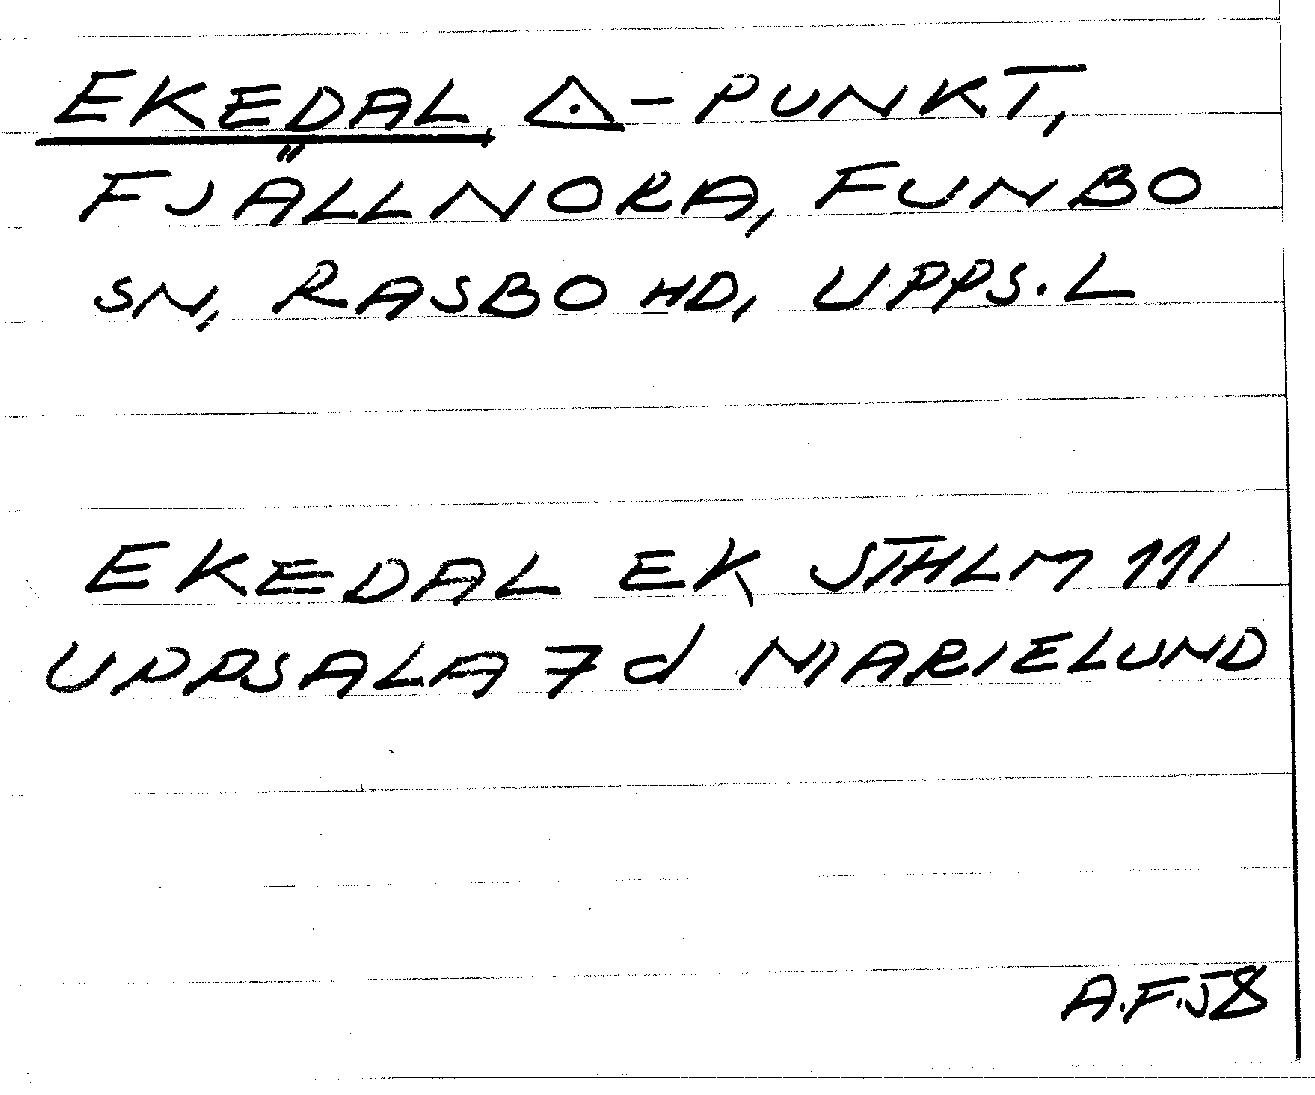 EKEDAL, △-PUNKT,
FJÄLLNORA, FUNBO
SN, RASBO HD, UPPS. L
EKEDAL EK STHLM 111
UPPSALA 7 d MARIELUND
A.F.58